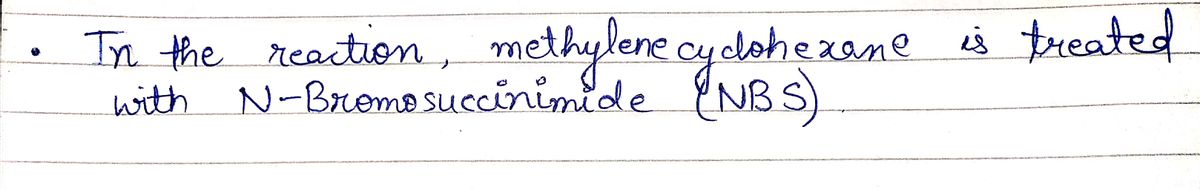 • In the reaction, methylenecyclohexane is treated
with N-Bromosuccinimide (NBS).